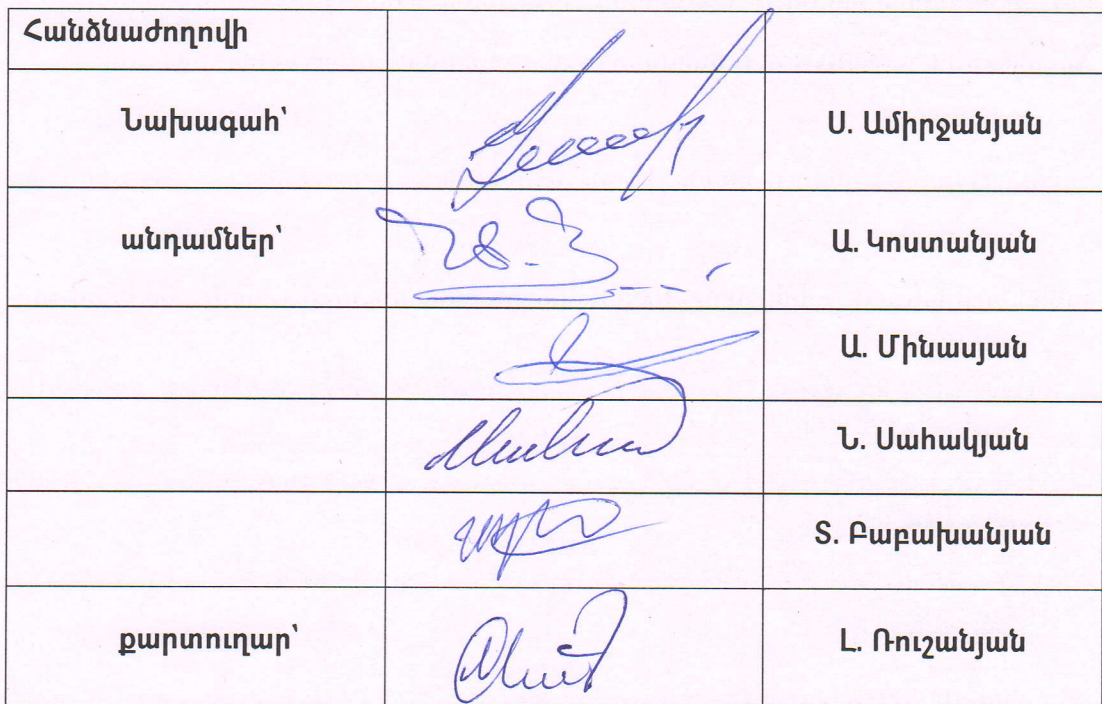 Հանձնաժողովի
Նախագահ՝ Ս. Ամիրջանյան
անդամներ՝ Ա. Կոստանյան
Ա. Մինասյան
Ն. Սահակյան
Տ. Բաբախանյան
քարտուղար՝ Լ. Ռուշանյան